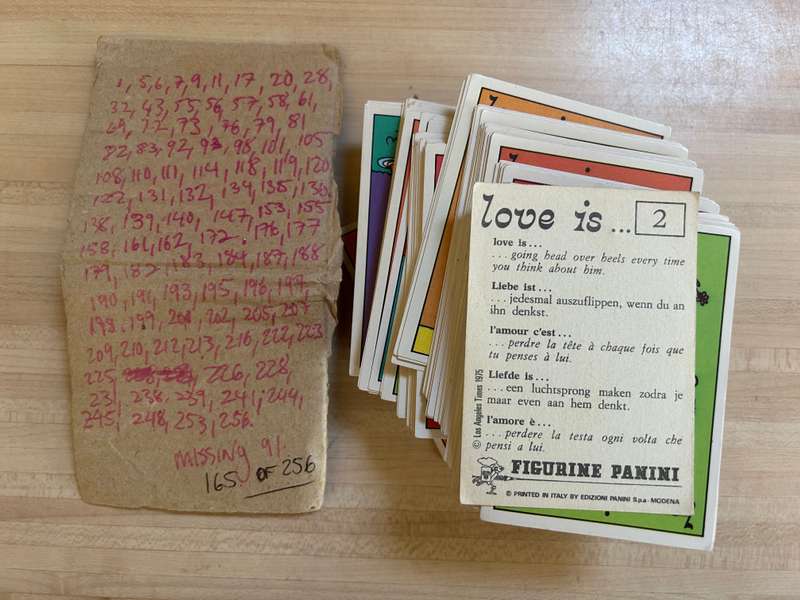 1, 5, 6, 7, 9, 11, 17, 20, 28,
32, 43, 55, 56, 57, 58, 61,
69, 72, 73, 76, 79, 81
82, 83, 92, 93, 98, 101, 105
108, 110, 111, 114, 118, 119, 120
122, 131, 132, 134, 135, 136
138, 139, 140, 147, 153, 155
158, 161, 162, 172, 176, 177
179, 182, 183, 184, 187, 188
190, 191, 193, 195, 196, 197,
198, 199, 201, 202, 205, 207
209, 210, 212, 213, 216, 222, 223
225, 226, 228,
231, 238, 239, 241, 244,
245, 248, 253, 256.
MISSING 91.
165 OF 256
love is ... 2
love is ...
... going head over heels every time
you think about him.
Liebe ist ...
... jedesmal auszuflippen, wenn du an
ihn denkst.
l'amour c'est ...
... perdre la tête à chaque fois que
tu penses à lui.
Liefde is ...
... een luchtsprong maken zodra je
maar even aan hem denkt.
l'amore è ...
... perdere la testa ogni volta che
pensi a lui.
© Los Angeles Times 1975
FIGURINE PANINI
© PRINTED IN ITALY BY EDIZIONI PANINI S.p.a - MODENA